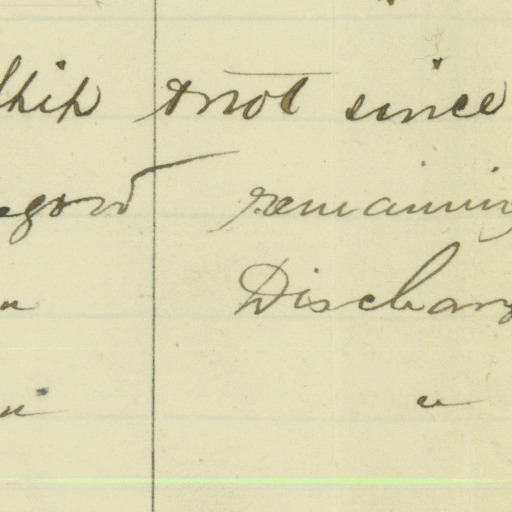 Ship & not since
egon remaining
" Discharg
" "